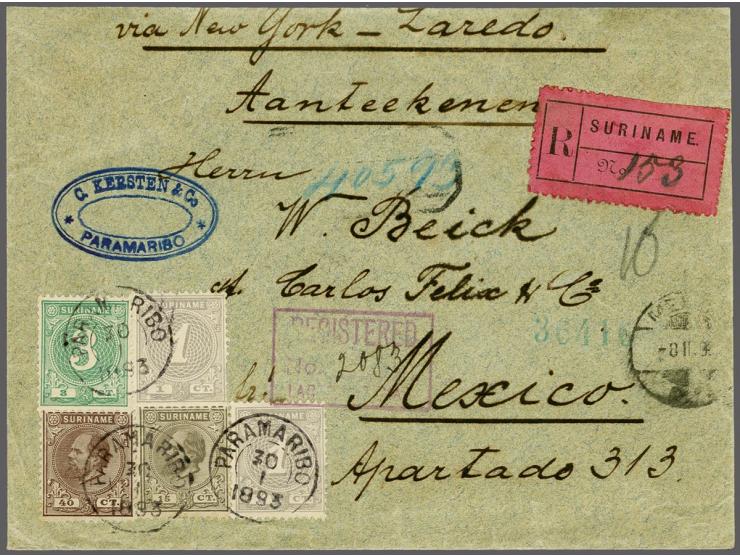 via New York - Laredo.
Aanteekenen
R
SURINAME.
No 153
Herrn
40593
C. KERSTEN & Co
* *
PARAMARIBO
W. Beick
10
A. Carlos Felix & Cº
PARAMARIBO
30
1893
SURINAME
3
3 CT.
SURINAME
1
1 CT.
REGISTERED
No.
2083
36416
8 II. 9
Mexico.
SURINAME
40 CT.
SURINAME
15 CT.
PARAMARIBO
1893
PARAMARIBO
30
1
1893
Apartado 313.